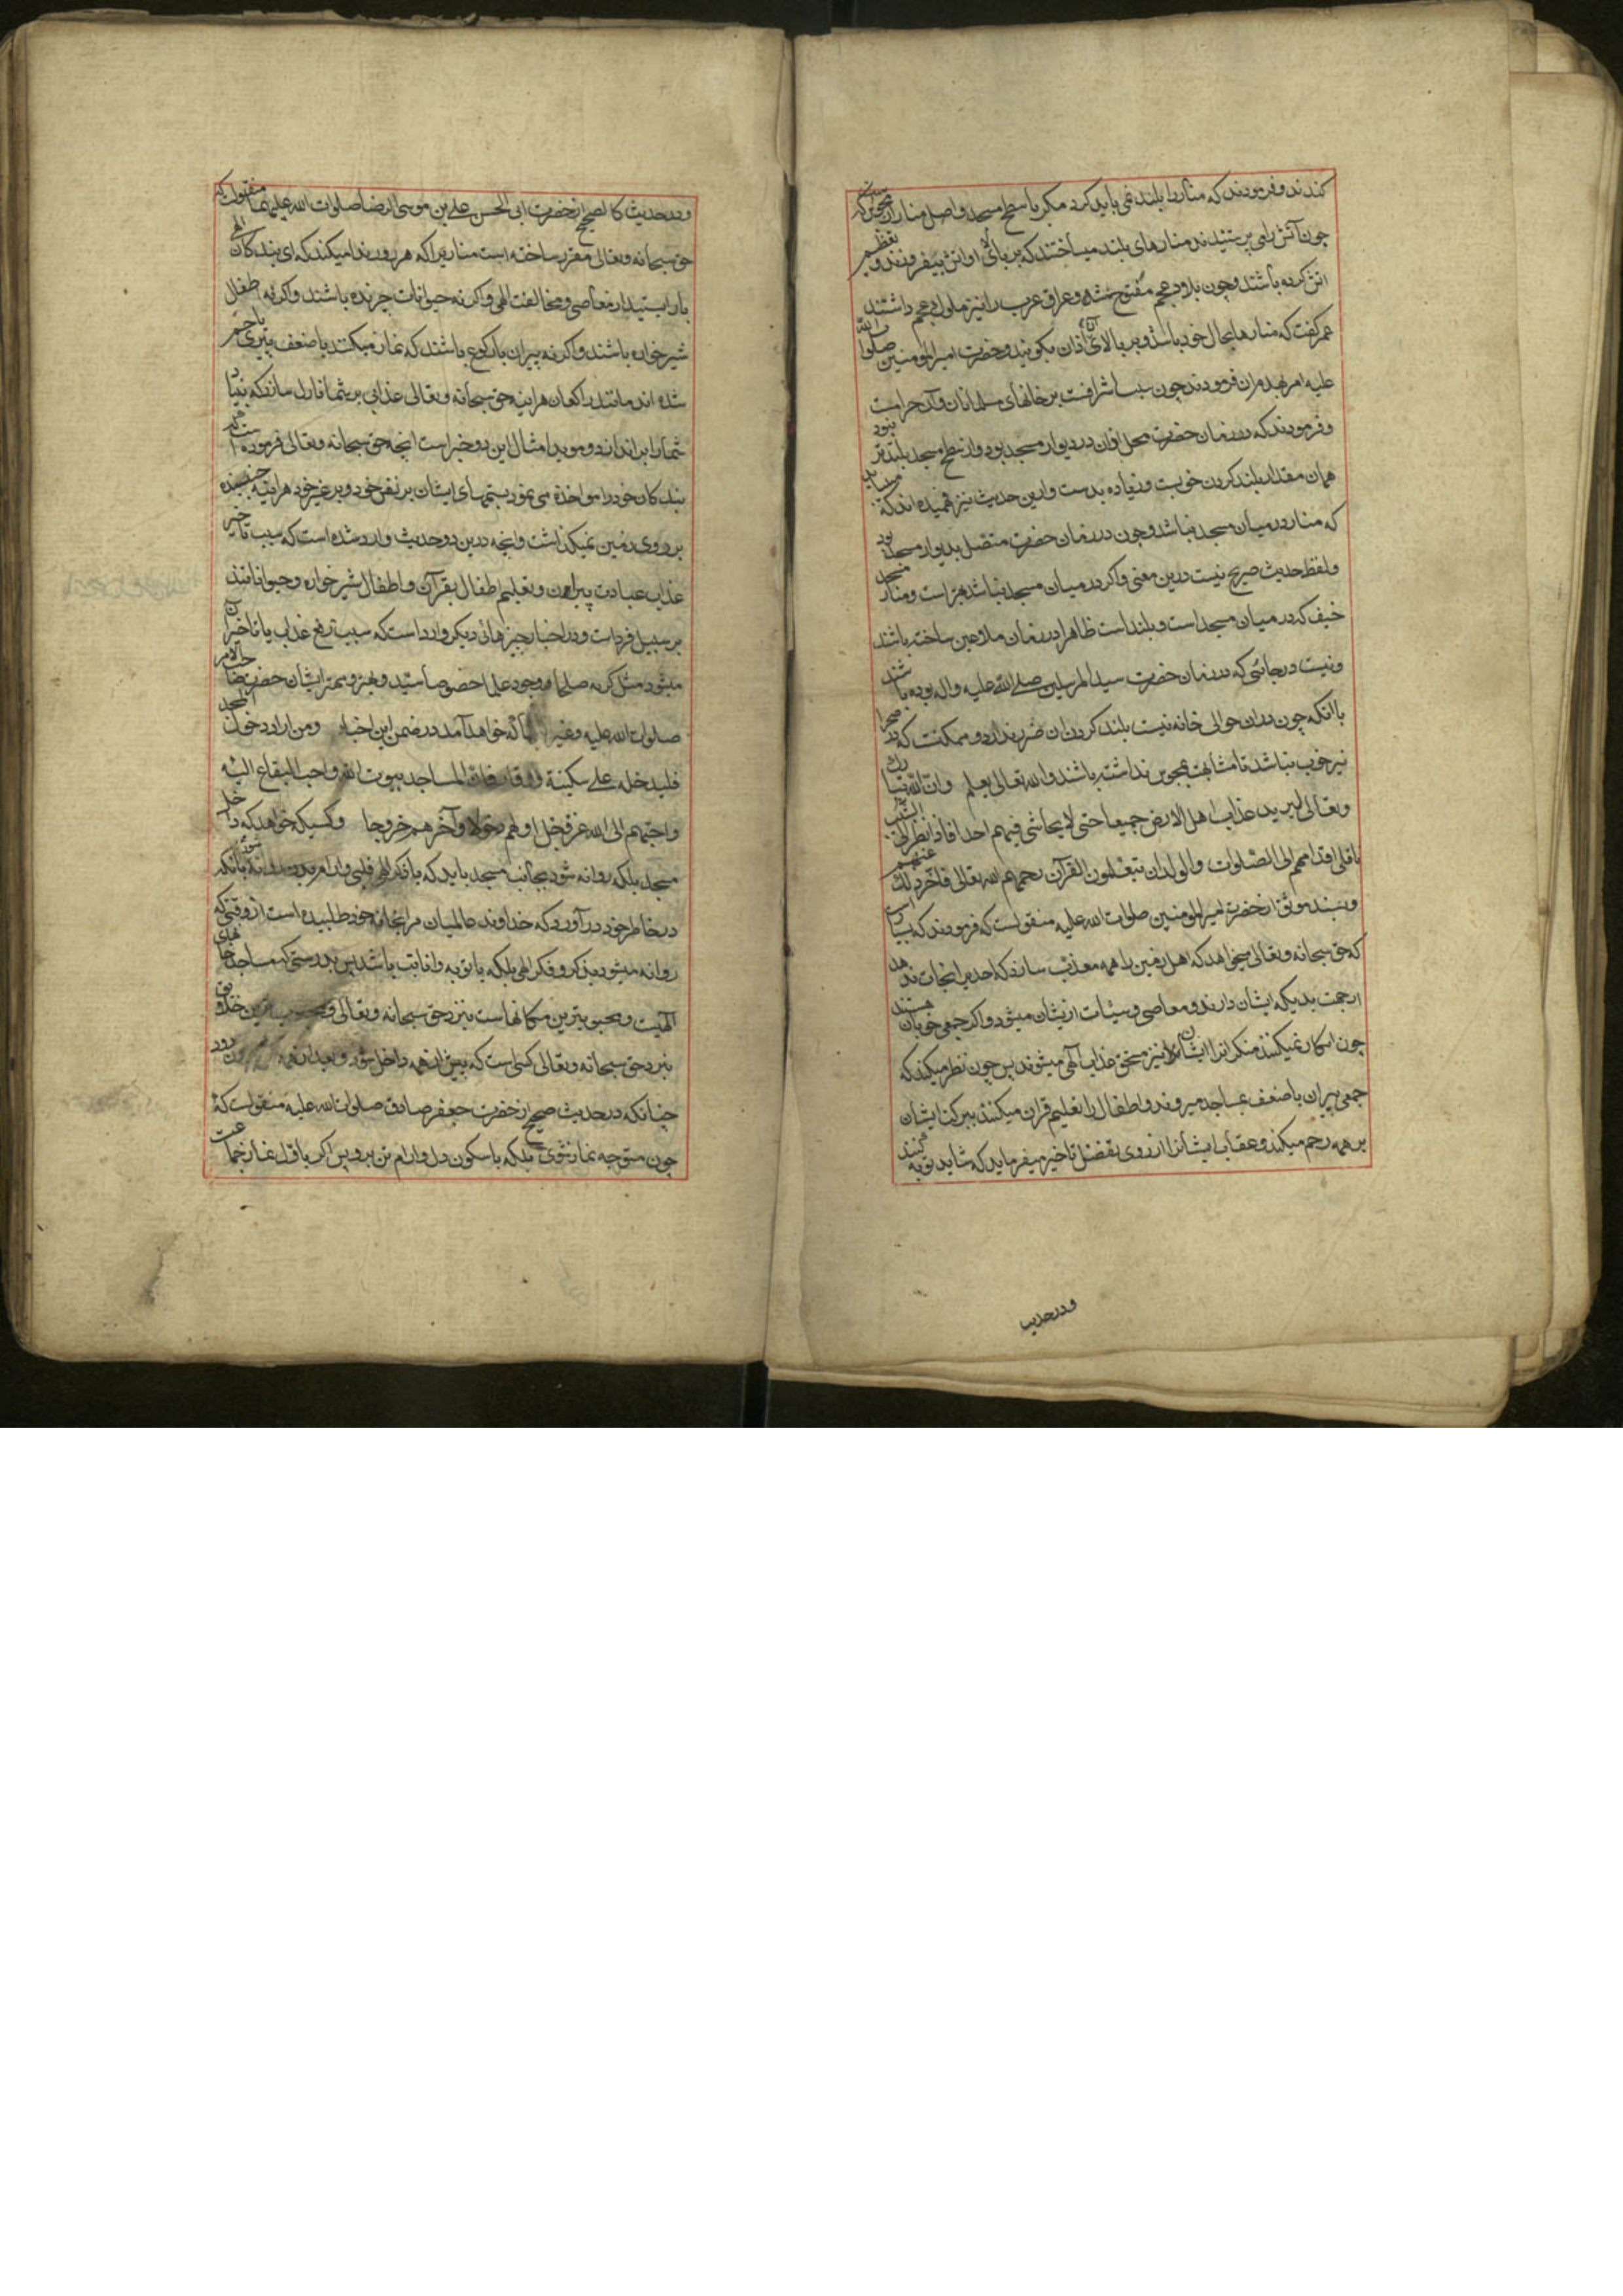 کنند و فرمودند که منار را بلند نمی باید کرد مکر با سطح مسجد و اصل منار از مجوس که
چون آتش را می پرستیدند منارهای بلند میساختند که بر بالای او آتش بیفروزند و تعظیم
آتش کرده باشند و چون بلاد عجم مفتوح شد و عراق عرب را نیز ملوک عجم داشتند
عمر کفت که منارها بحال خود باشد و بر بالای آن اذان بکویند و حضرت امیرالمؤمنین صلوات الله
علیه امر بهدم ان فرمودند چون سبب اشرافست بر خانهای مسلمانان و آن حرامست
و فرمودند که در زمان حضرت محل اذان در دیوار مسجد بود و از سطح مسجد بلندتر نبود
همان مقدار بلند کردن خوبست و زیاده بدست و ازین حدیث نیز فهمیده اند که می باید
که منار در میان مسجد نباشد و چون در زمان حضرت متصل بدیوار مسجد بود
و لفظ حدیث صریح نیست درین معنی و اکر در میان مسجد نباشد بهتر است و منار مسجد
خیف که در میان مسجد است و بلند است ظاهرا در زمان ملاعین ساخته باشند
و نیست در جائی که در زمان حضرت سید المرسلین صلی الله علیه و اله بوده باشند
با آنکه چون در ان حوالی خانه نیست بلند کردن ان ضرر ندارد و ممکنست که در صحرا
نیز خوب نباشد تا مشابهت بمجوس نداشته باشند و الله تعالی یعلم و ان الله تبارک
و تعالی لیرید عذاب اهل الارض جمیعا حتی لا یحاشی فیهم احدا فاذا نظر الی الشیب
ناقلی اقدامهم الی الصلوات و الولدان یتعلمون القرآن رحمهم الله تعالی فاخر ذلک عنهم
و بسند موثق از حضرت امیرالمؤمنین صلوات الله علیه منقولست که فرمودند که بسیار است
که حق سبحانه و تعالی میخواهد که اهل زمین را همه معذب سازد که احدی را نجات ندهد
از جهت بدیکه ایشان دارند و معاصی و سیئات از یشان میشود و اکر جمعی خوبان هستند
چون انکار نمیکنند منکر انرا ایشان نیز مستحق عذاب آلهی میشوند پس چون نظر میکند که
جمعی پیران با ضعف بمساجد میروند و اطفال را تعلیم قران میکنند ببرکت ایشان
بر همه رحم میکند و عقاب ایشانرا از روی تفضل تاخیر میفرماید که شاید توبه کنند
و در حدیث
و در حدیث کالصحیح از حضرت ابی الحسن علی بن موسی الرضا صلوات الله علیهما منقولست که
حق سبحانه و تعالی مقرر ساخته است منادیرا که هر روز ندا میکند که ای بندکان الهی
باز ایستید از معاصی و مخالفت الهی و اکر نه حیوانات چرنده باشند و اکر نه اطفال
شیر خواره باشند و اکر نه پیران با رکوع باشند که نماز میکنند با ضعف پیری یا خم
شده اند مانند راکعان هراینه حق سبحانه و تعالی عذابی بر شما نازل سازد که بنیاد
شما را براندازد و موید امثال این دو خبر است انچه حق سبحانه و تعالی فرموده است که
بندکان خود را مواخذه می نمود بستمهای ایشان بر نفس خود و بر غیر خود هراینه جنبنده
بر روی زمین نمیکذاشت و انچه درین دو حدیث وارد شده است که سبب تاخیر
عذاب عبادت پیران و تعلیم اطفال بقرآن و اطفال شیر خواره و حیوانانند
بر سبیل فرداست و در اخبار چیزهائی دیکر وارداست که سبب رفع عذاب یا تاخیر آن
میشود مثل کریه صلحا و وجود علما خصوصا سید و بهتر و مهتر ایشان حضرت صاحب الامر
صلوات الله علیه و غیر انها که خواهد آمد در ضمن این اخبار و من اراد دخول المسجد
فلیدخله علی سکینة و وقار فان المساجد بیوت الله و احب البقاع الیه
و احبهم الی الله عز و جل اولهم دخولا و آخرهم خروجا و کسیکه خواهد که داخل
مسجد بلکه روانه شود بجانب مسجد باید که با فکر الهی قلبی و ارام بدن روانه شود بانکه
در خاطر خود در آورد که خداوند عالمیان مرا بخانه خود طلبیده است از وقتی که
روانه میشود بذکر و فکر الهی بلکه با توبه و انابت باشد پس بدرستی که مساجد خانهای
آلهیست و محبوبترین مکانهاست نزد حق سبحانه و تعالی و محبوب ترین خلایق
نزد حق سبحانه و تعالی کسی است که پیش از همه داخل شود و بعد از همه بیرون رود
چنانکه در حدیث صحیح از حضرت جعفر صادق صلوات الله علیه منقولست که
چون متوجه نماز شوی بلکه با سکون دل و ارام تن برو پس اکر باول نماز جماعت